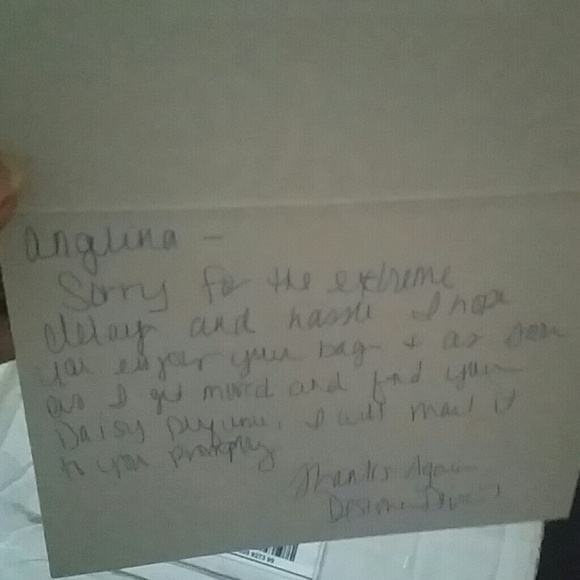 Anglina -
Sorry for the extreme
delay and hassle I hope
you enjoy your bag + as soon
as I get moved and find your
Daisy perfume, I will mail it
to you promptly
Thanks Again